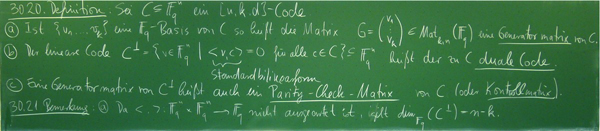 30.20. Definition: Sei C ≤ F_q^n ein [n,k,d]-Code
(a) Ist {v_1, ..., v_k} eine F_q-Basis von C so heißt die Matrix G = (v_1 ⋮ v_k) ∈ Mat_{k,n}(F_q) eine Generatormatrix von C.
(b) Der lineare Code C^⊥ = {v ∈ F_q^n | <v,c> = 0 für alle c ∈ C} ≤ F_q^n heißt der zu C duale Code.
Standardbilinearform
(c) Eine Generatormatrix von C^⊥ heißt auch ein Parity-Check-Matrix von C (oder Kontrollmatrix).
30.21 Bemerkung: (a) Da <.,.>: F_q^n × F_q^n → F_q nicht ausgeartet ist, gilt dim_{F_q}(C^⊥) = n-k.